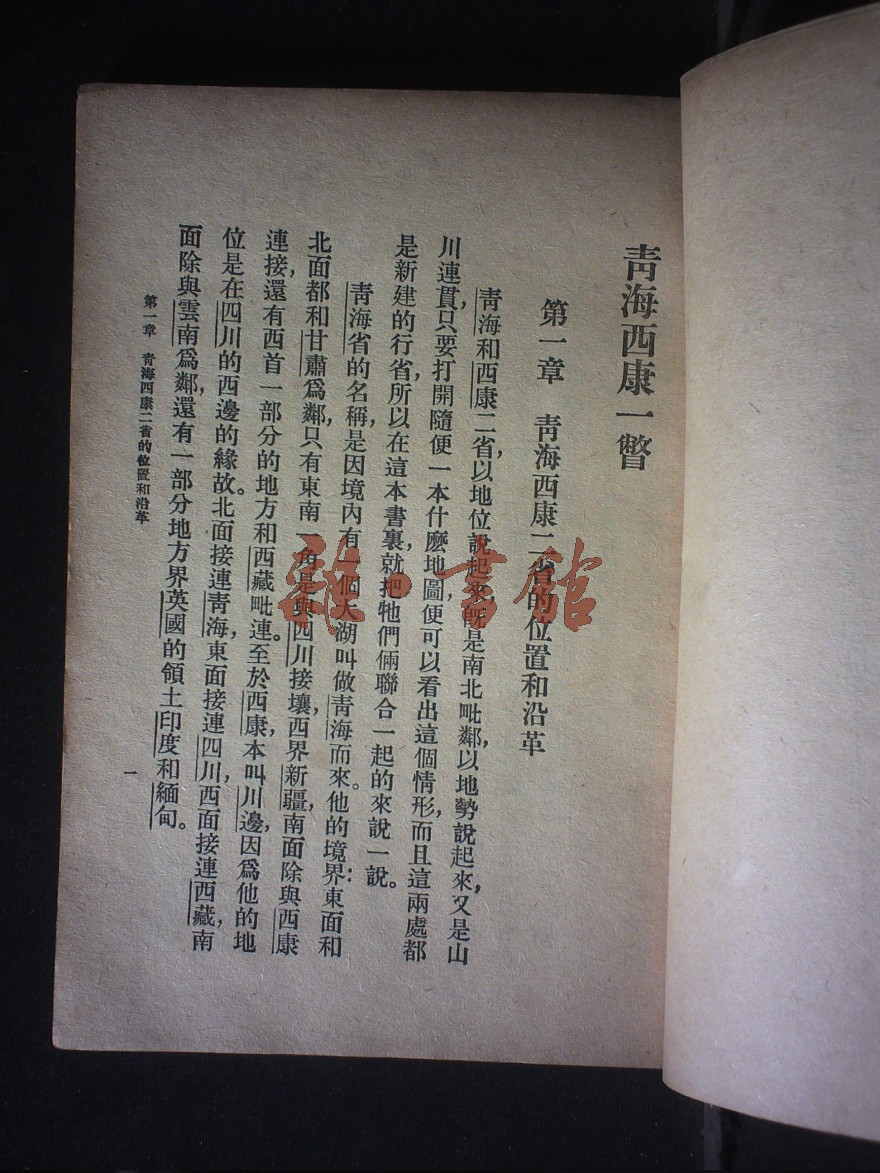 靑海西康一瞥
第一章　靑海西康二省的位置和沿革
靑海和西康二省，以地位說起來，旣是南北毗鄰，以地勢說起來，又是山
川連貫，只要打開隨便一本什麽地圖，便可以看出這個情形，而且這兩處都
是新建的行省，所以在這本書裏，就把牠們倆聯合一起的來說一說。
靑海省的名稱，是因境內有一個大湖叫做靑海而來。他的境界：東面和
北面都和甘肅爲鄰，只有東南一角是與四川接壤，西界新疆，南面除與西康
連接，還有西首一部分的地方和西藏毗連。至於西康，本叫川邊，因爲他的地
位是在四川的西邊的緣故。北面接連靑海，東面接連四川，西面接連西藏，南
面除與雲南爲鄰，還有一部分地方界英國的領土印度和緬甸。
第一章　靑海西康二省的位置和沿革
一
雜·書館